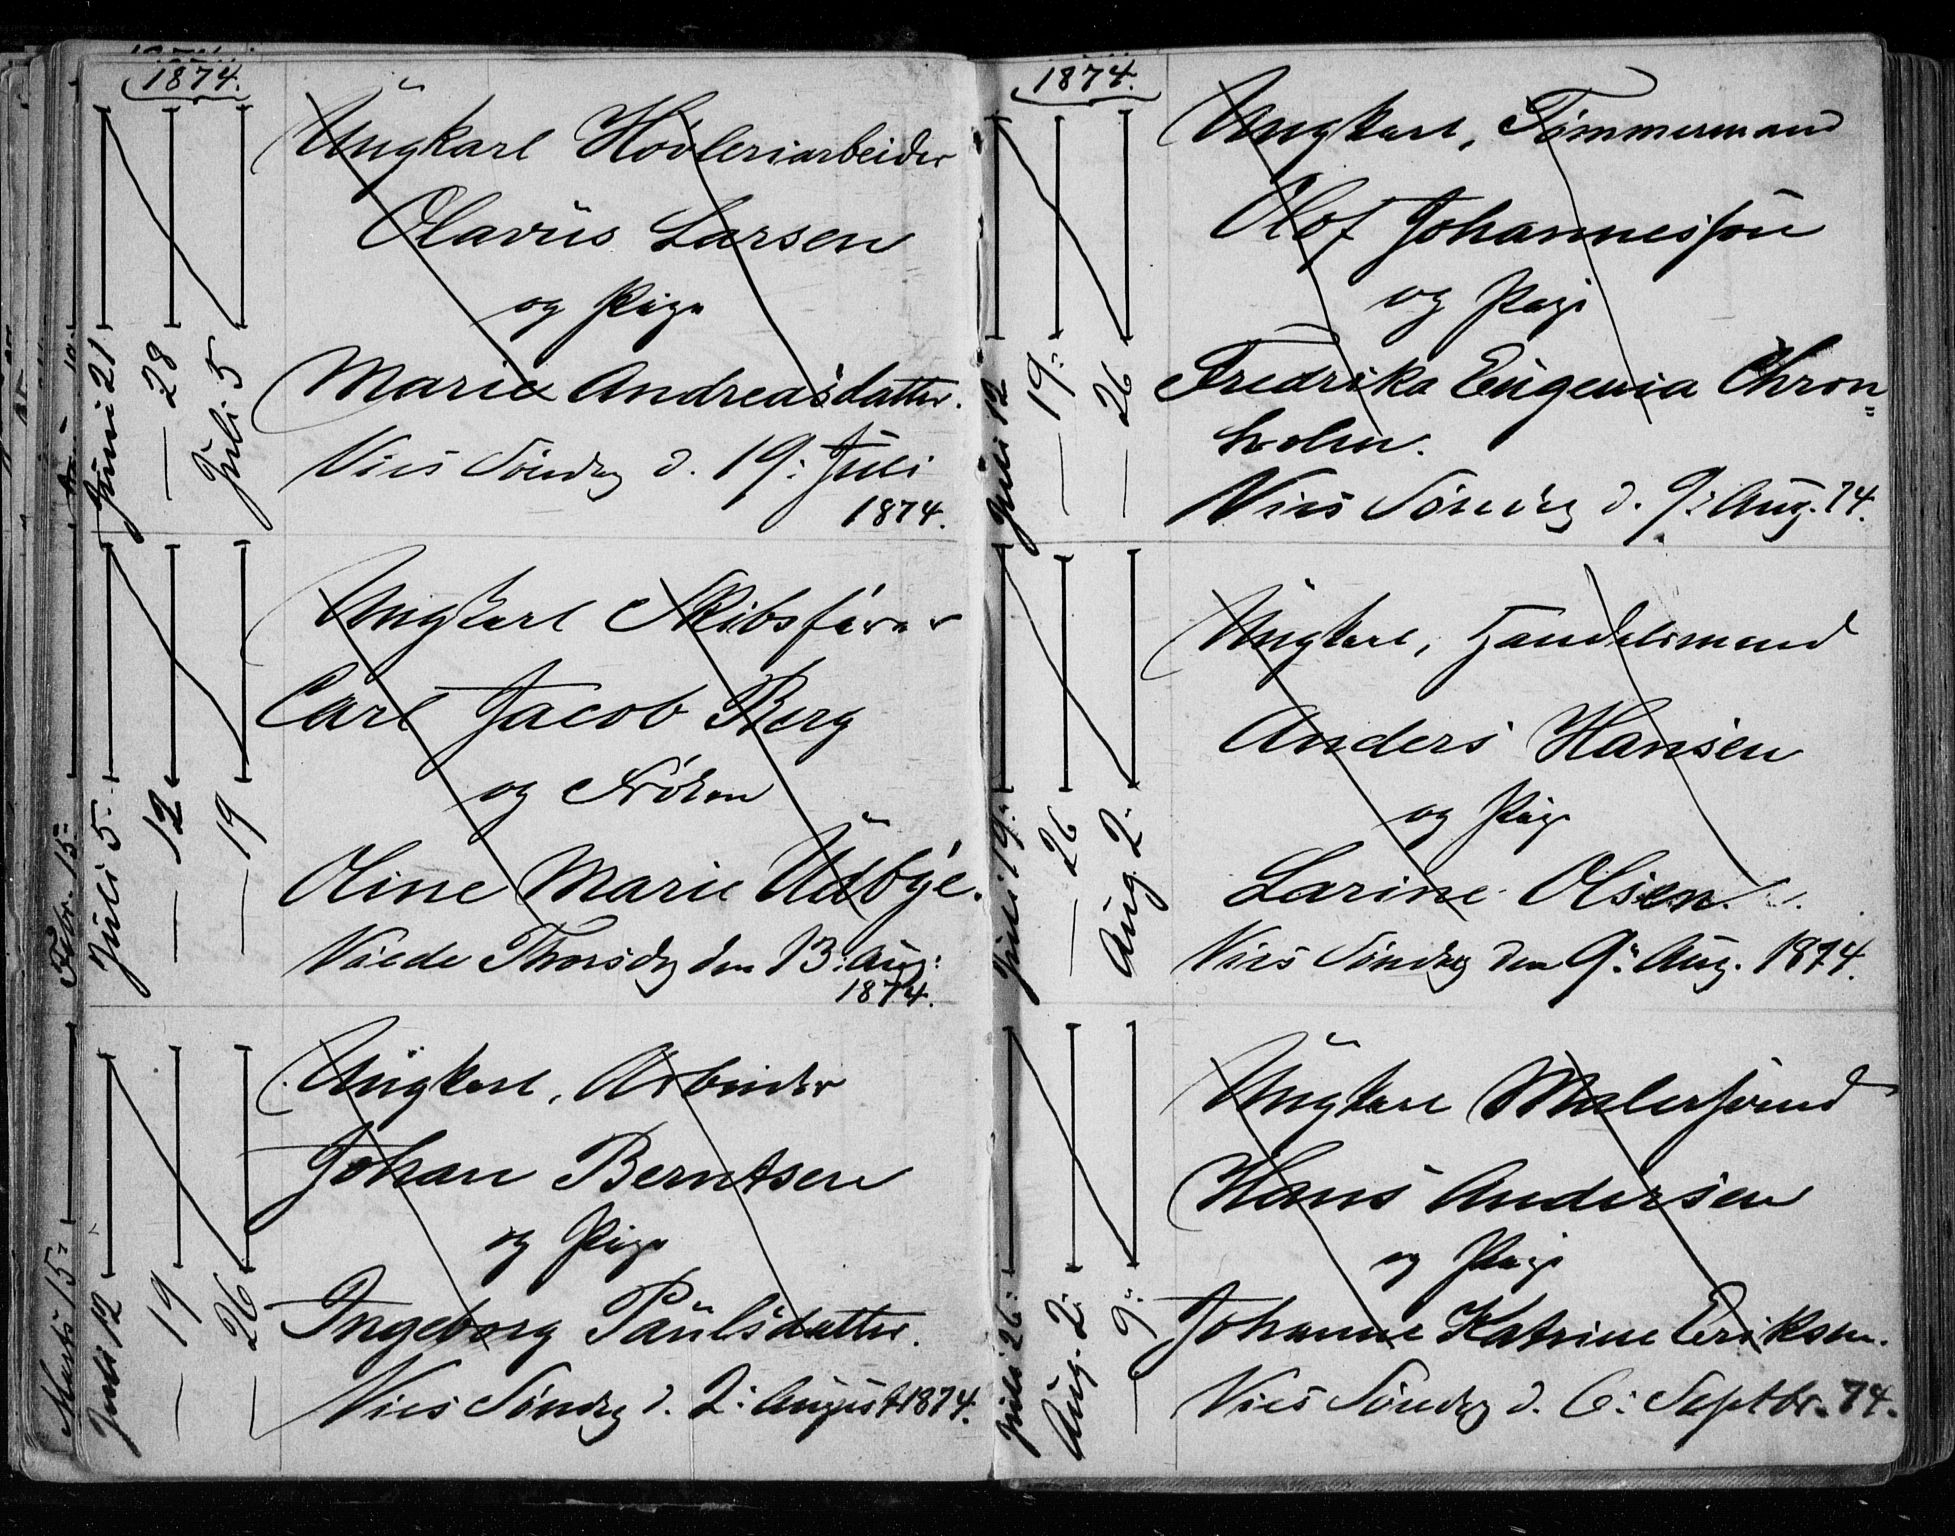 1874.
Juni 21
— 28
Juli 5
Ungkarl Høvleriarbeider
Olavus Larsen
og Pige
Marie Andreasdatter.
Vies Søndag d. 19: Juli
1874.
Juli 5
— 12
— 19
Ungkarl Skibsfører
Carl Jacob Berg
og Frøken
Oline Marie Udbye.
Viede Thorsdag den 13: Aug:
1874.
Juli 12
— 19
— 26
Ungkarl, Arbeider
Johan Berntsen
og Pige
Ingeborg Paulsdatter.
Vies Søndag d. 2: August 1874.
Febr. 15:
Marts 15:
1874.
Juli 12
— 19:
— 26
Ungkarl, Tømmermand
Olof Johannesson
og Pige
Fredrika Eugenia Chron=
holm.
Vies Søndag d. 9: Aug. 74.
Juli 19:
— 26
Aug. 2:
Ungkarl, Handelsmand
Anders Hansen
og Pige
Larine Olsen.
Vies Søndag den 9: Aug. 1874.
Juli 26:
Aug. 2:
— 9:
Ungkarl Malersvend
Hans Andersen
og Pige
Johanne Katrine Eriksen.
Vies Søndag d. 6: Septbr. 74.